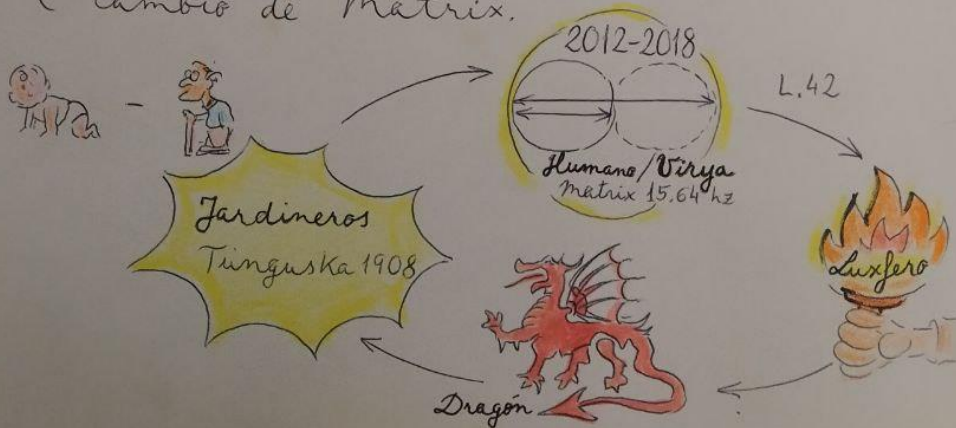 ( cambio de Matrix.
2012-2018
L.42
Humano/Virya
matrix 15.64 hz
Jardineros
Tunguska 1908
Luxfero
Dragón
?